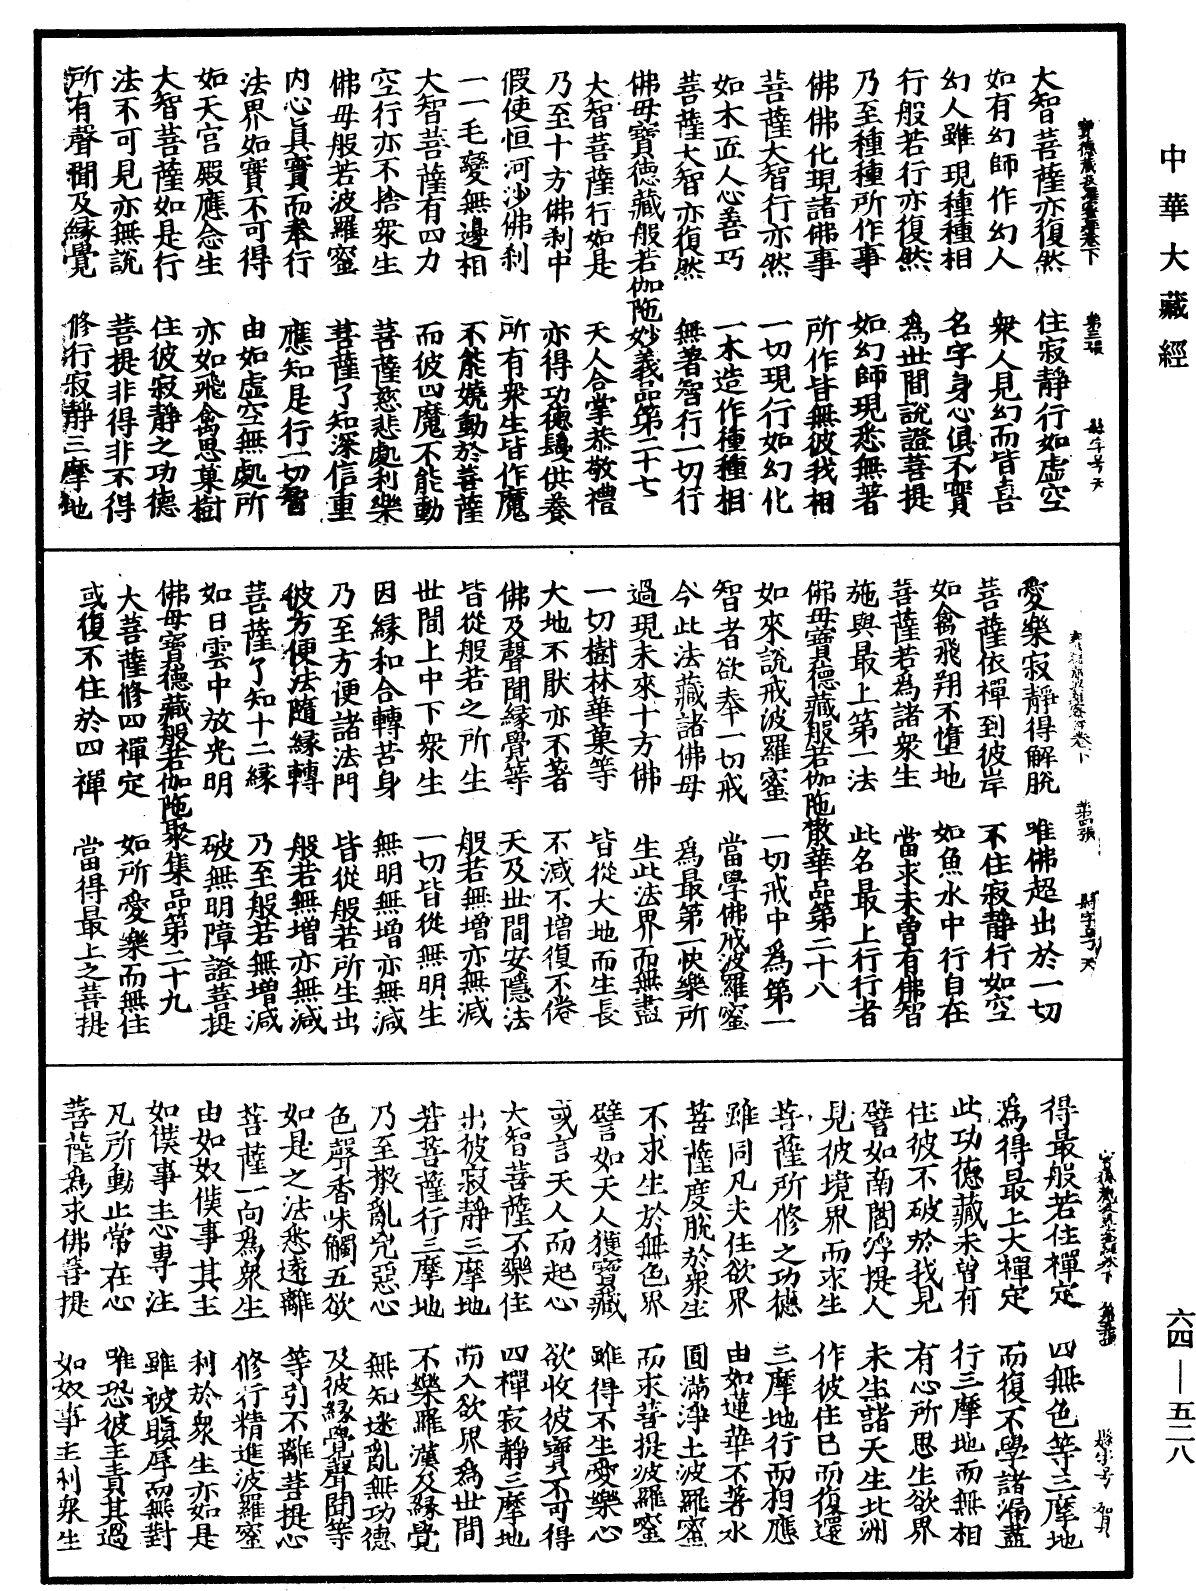 中華大藏經
六四—五二八
大智菩薩亦復然　住寂靜行如虛空
如有幻師作幻人　衆人見幻而皆喜
幻人雖現種種相　名字身心俱不實
行般若行亦復然　爲世間說證菩提
乃至種種所作事　如幻師現悉無著
佛佛化現諸佛事　所作皆無彼我相
菩薩大智行亦然　一切現行如幻化
如木匠人心善巧　一木造作種種相
菩薩大智亦復然　無著智行一切行
佛母寶德藏般若伽陁妙義品第二十七
大智菩薩行如是　天人合掌恭敬禮
乃至十方佛刹中　亦得功德鬘供養
假使恒河沙佛刹　所有衆生皆作魔
一一毛變無邊相　不能嬈動於菩薩
大智菩薩有四力　而彼四魔不能動
空行亦不捨衆生　菩薩慈悲處利樂
佛母般若波羅蜜　菩薩了知深信重
内心眞實而奉行　應知是行一切智
法界如實不可得　由如虛空無處所
如天宫殿應念生　亦如飛禽思菓樹
大智菩薩如是行　住彼寂靜之功德
法不可見亦無說　菩提非得非不得
所有聲聞及緣覺　修行寂靜三摩地
愛樂寂靜得解脫　唯佛超出於一切
菩薩依禪到彼岸　不住寂靜行如空
如禽飛翔不墮地　如魚水中行自在
菩薩若爲諸衆生　當求未曾有佛智
施與最上第一法　此名最上行行者
佛母寶德藏般若伽陁散華品第二十八
如來說戒波羅蜜　一切戒中爲第一
智者欲奉一切戒　當學佛戒波羅蜜
今此法藏諸佛母　爲最第一快樂所
過現未來十方佛　生此法界而無盡
一切樹林華菓等　皆從大地而生長
大地不猒亦不著　不減不增復不倦
佛及聲聞緣覺等　天及世間安隱法
皆從般若之所生　般若無增亦無減
世間上中下衆生　一切皆從無明生
因緣和合轉苦身　無明無增亦無減
乃至方便諸法門　皆從般若所生出
彼方便法隨緣轉　般若無增亦無減
菩薩了知十二緣　乃至般若無增減
如日雲中放光明　破無明障證菩提
佛母寶德藏般若伽陁聚集品第二十九
大菩薩修四禪定　如所愛樂而無住
或復不住於四禪　當得最上之菩提
得最般若住禪定　四無色等三摩地
爲得最上大禪定　而復不學諸漏盡
此功德藏未曾有　行三摩地而無相
住彼不破於我見　有心所思生欲界
譬如南閻浮提人　未生諸天生北洲
見彼境界而求生　作彼住已而復還
菩薩所修之功德　三摩地行而相應
雖同凡夫住欲界　由如蓮華不著水
菩薩度脫於衆生　圓滿淨土波羅蜜
不求生於無色界　而求菩提波羅蜜
譬如天人獲寶藏　雖得不生愛樂心
或言天人而起心　欲收彼寶不可得
大智菩薩不樂住　四禪寂靜三摩地
出彼寂靜三摩地　而入欲界爲世間
若菩薩行三摩地　不樂羅漢及緣覺
乃至散亂兇惡心　無知迷亂無功德
色聲香味觸五欲　及彼緣覺聲聞等
如是之法悉遠離　等引不離菩提心
菩薩一向爲衆生　修行精進波羅蜜
由如奴僕事其主　利於衆生亦如是
如僕事主心專注　雖被瞋辱而無對
凡所動止常在心　唯恐彼主責其過
菩薩爲求佛菩提　如奴事主利衆生